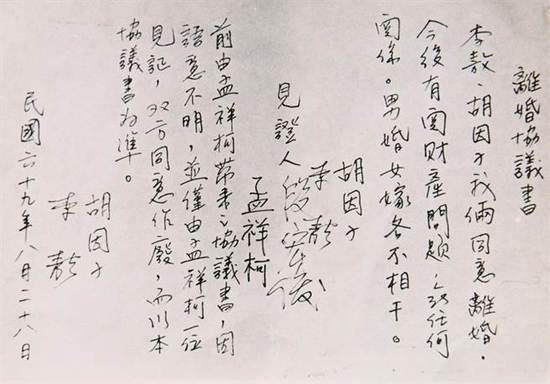 離婚協議書
李敖、胡因子我倆同意離婚,
今後有関財產問題,任何
関係。男婚女嫁各不相干。
胡因子
李敖
見證人段宏俊
孟祥柯
前由孟祥柯帶来之協議書,因
語意不明,並僅由孟祥柯一位
見証,双方同意作廢,而以本
協議書为準。
胡因子
李敖
民國六十九年八月二十八日